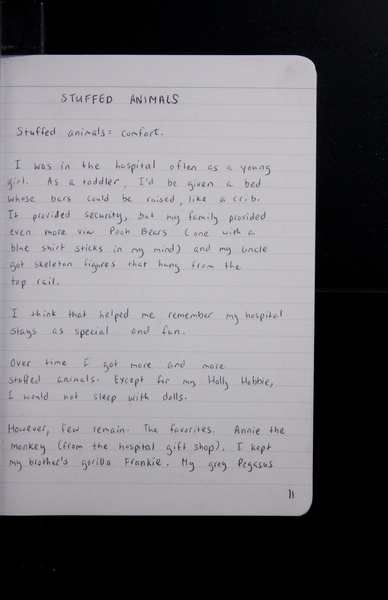 STUFFED ANIMALS
Stuffed animals = comfort.
I was in the hospital often as a young
girl. As a toddler, I'd be given a bed
whose bars could be raised, like a crib.
It provided security, but my family provided
even more via Pooh Bears (one with a
blue shirt sticks in my mind) and my uncle
got skeleton figures that hung from the
top rail.
I think that helped me remember my hospital
stays as special and fun.
Over time I got more and more
stuffed animals. Except for my Holly Hobbie,
I would not sleep with dolls.
However, few remain. The favorites. Annie the
monkey (from the hospital gift shop). I kept
my brother's gorilla Frankie. My grey Pegasus
11